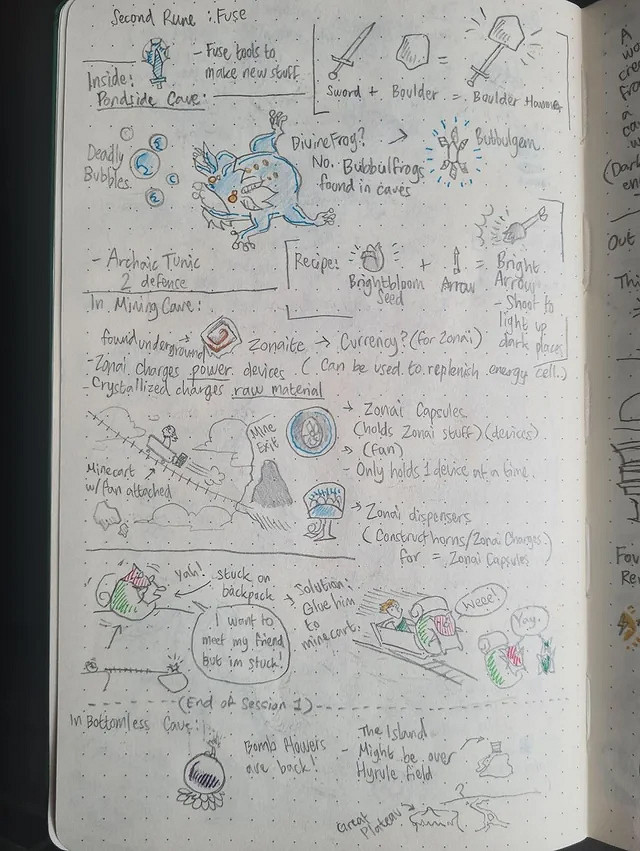 Second Rune : Fuse
- Fuse tools to
make new stuff
Sword + Boulder = Boulder Hammer
Inside:
Pondside Cave:
Deadly
Bubbles
Divine Frog?
No. Bubbulfrogs
found in caves
Bubbulgem
- Archaic Tunic
2 defence
Recipe:
Brightbloom
Seed
+
Arrow
=
Bright
Arrow
- Shoot to
light up
dark places
In Mining Cave:
found underground
Zonaite → Currency? (for Zonai)
- Zonai Charges power devices (Can be used to replenish energy cell.)
- Crystallized charges raw material
Minecart
w/ fan attached
Mine
Exit
→ Zonai Capsules
(holds Zonai stuff) (devices)
→ (fan)
- Only holds 1 device at a time.
→ Zonai dispensers
(Construct horns/Zonai Charges)
for = Zonai Capsules
Yah!
stuck on
backpack
I want to
meet my friend
but im stuck!
→ Solution:
Glue him
to
minecart.
Weee!
Yay.
(End of Session 1)
In Bottomless Cave:
Bomb flowers
are back!
- The Island
Might be over
Hyrule field
?
Great
Plateau
A
wo
cre
fro
a
co
w
(Dark
en
Out
Thi
Fo
Re